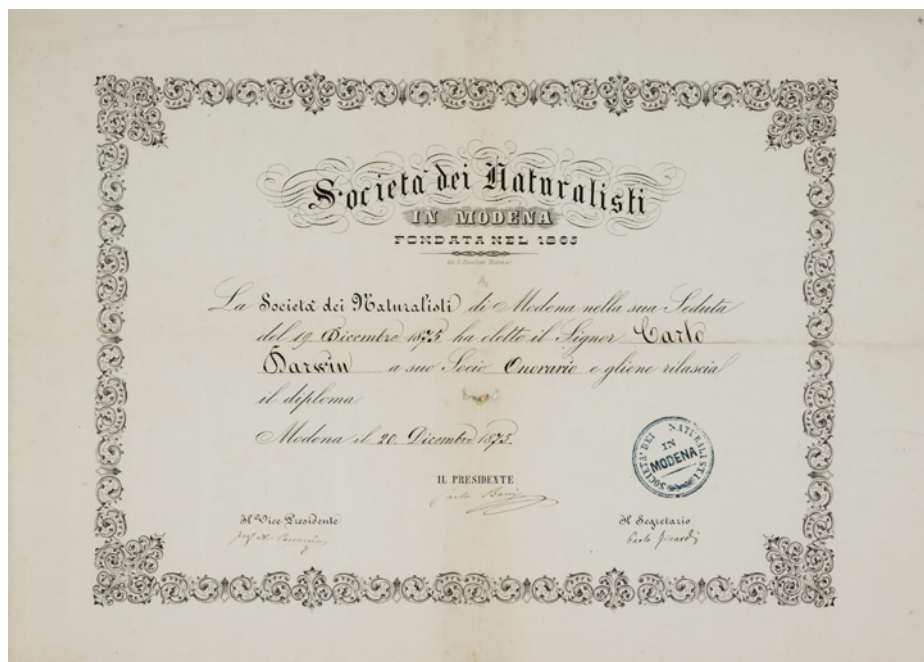 Società dei Naturalisti
IN MODENA
FONDATA NEL 1865
La Società dei Naturalisti di Modena nella sua Seduta
del 19 Dicembre 1875 ha eletto il Signor Carlo
Darwin a suo Socio Onorario e gliene rilascia
il diploma
Modena il 20 Dicembre 1875.
IL PRESIDENTE
Carlo Boni
Il Vice Presidente
Il Segretario
SOCIETA' DEI NATURALISTI
IN
MODENA